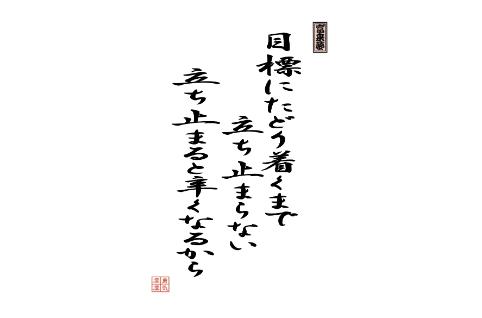 目標にたどり着くまで
立ち止まらない
立ち止まると辛くなるから